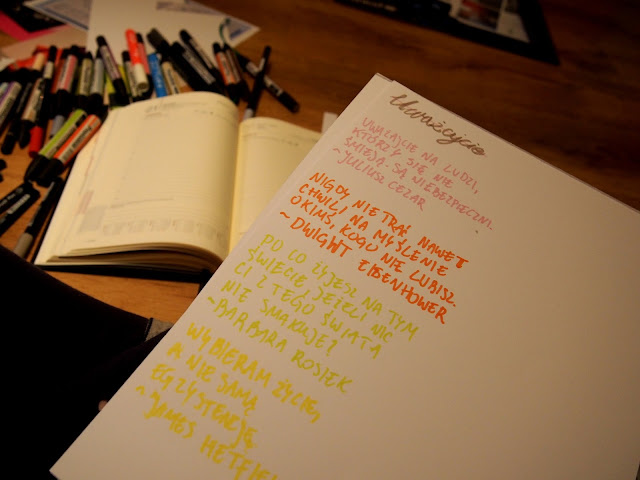 Uważajcie
UWAŻAJCIE NA LUDZI,
KTÓRZY SIĘ NIE
ŚMIEJĄ. SĄ NIEBEZPIECZNI.
~JULIUSZ CEZAR
NIGDY NIE TRAĆ NAWET
CHWILI NA MYŚLENIE
O KIMŚ, KOGO NIE LUBISZ.
~DWIGHT EISENHOWER
PO CO ŻYJESZ NA TYM
ŚWIECIE JEŻELI NIC
CI Z TEGO ŚWIATA
NIE SMAKUJE?
~BARBARA ROSIEK
WYBIERAM ŻYCIE,
A NIE SAMĄ
EGZYSTENCJĘ
~JAMES HETFIE